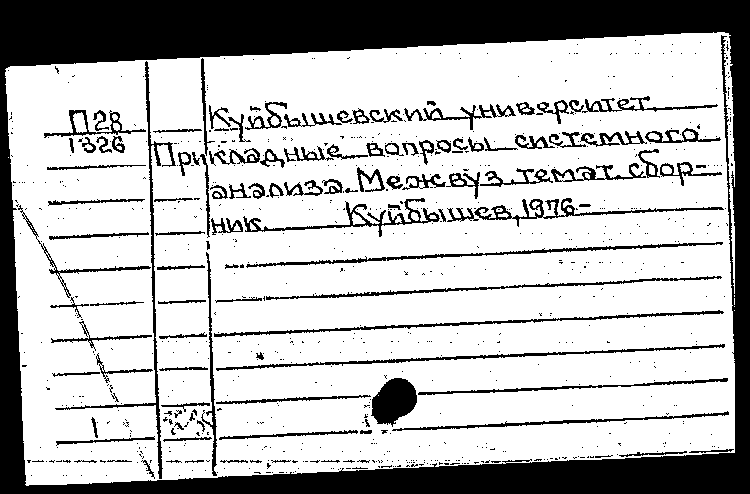 П28
1326
Куйбышевский университет.
Прикладные вопросы системного
анализа. Межвуз. темат. сбор-
ник. Куйбышев, 1976-
1